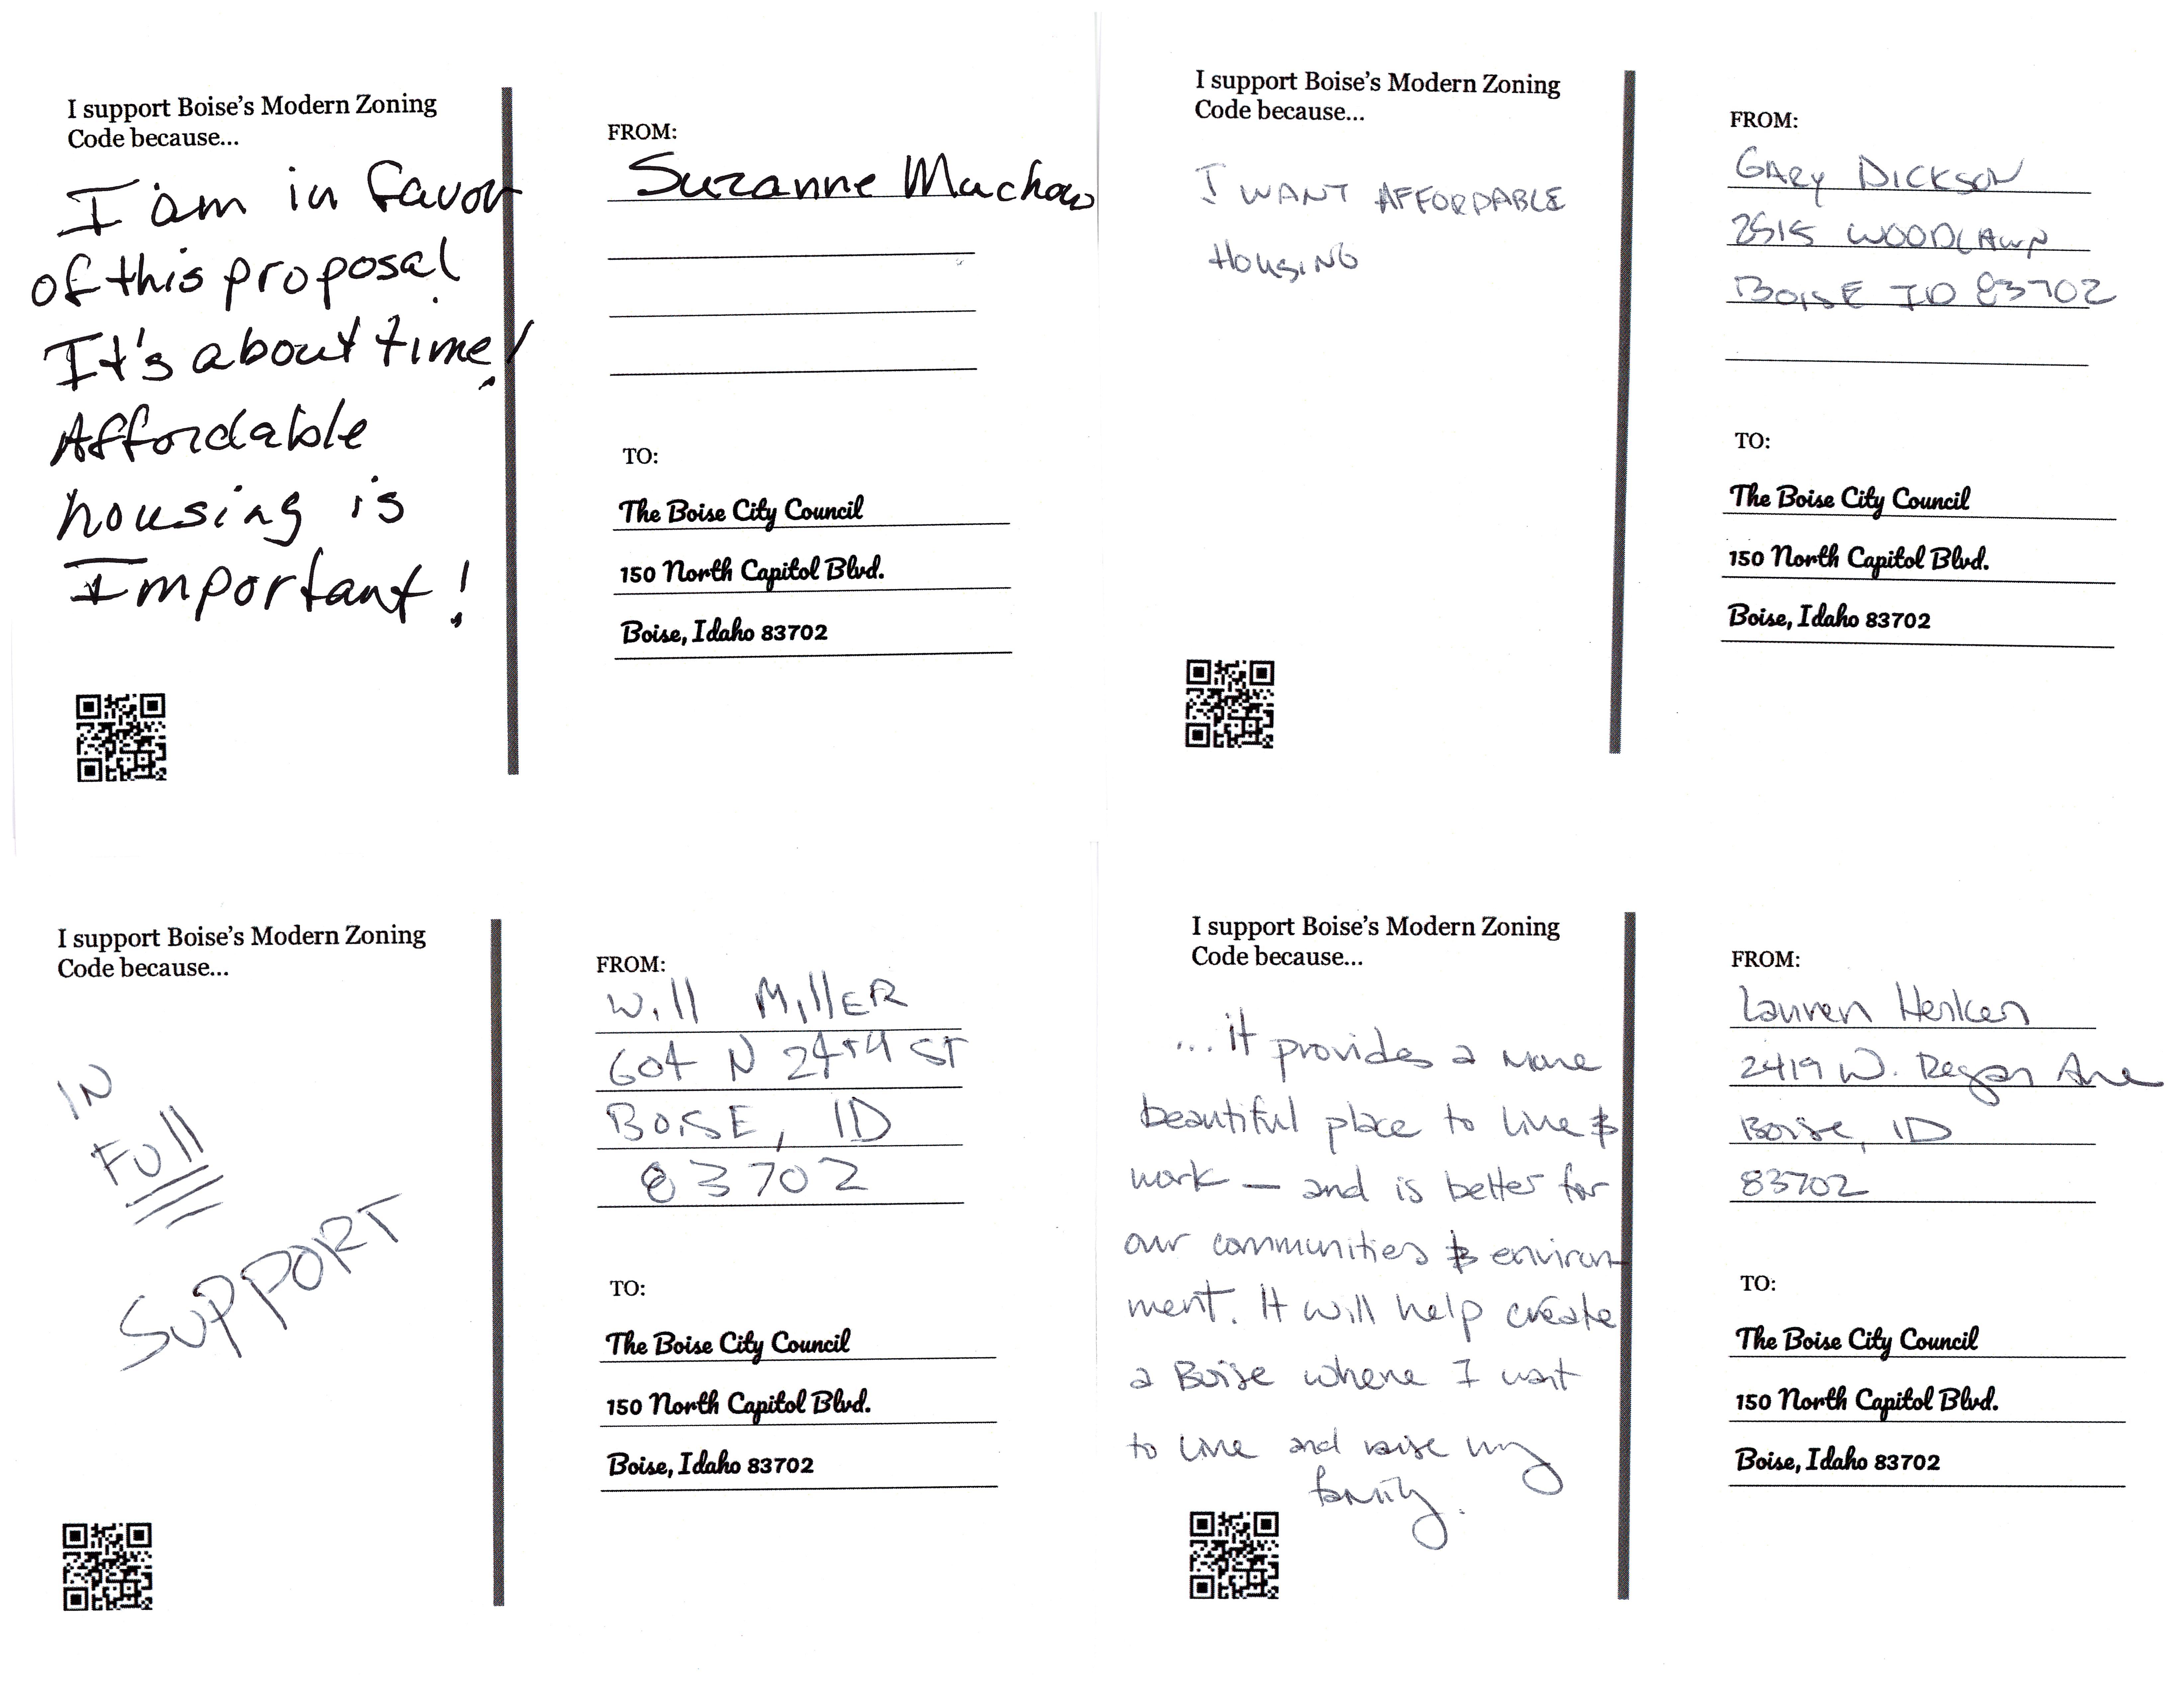 I support Boise's Modern Zoning
Code because...
I am in favor
of this proposal.
It's about time!
Affordable
housing is
Important!
FROM:
Suzanne Machow
TO:
The Boise City Council
150 North Capitol Blvd.
Boise, Idaho 83702
I support Boise's Modern Zoning
Code because...
I WANT AFFORDABLE
HOUSING
FROM:
GARY DICKSON
2515 WOODLAWN
BOISE ID 83702
TO:
The Boise City Council
150 North Capitol Blvd.
Boise, Idaho 83702
I support Boise's Modern Zoning
Code because...
IN
FUll
SUPPORT
FROM:
Will MillER
604 N 24th ST
BOISE, ID
83702
TO:
The Boise City Council
150 North Capitol Blvd.
Boise, Idaho 83702
I support Boise's Modern Zoning
Code because...
...it provides a more
beautiful place to live &
work — and is better for
our communities & environ-
ment. It will help create
a Boise where I want
to live and raise my
family.
FROM:
Lauren Henken
2419 W. Regan Ave
Boise, ID
83702
TO:
The Boise City Council
150 North Capitol Blvd.
Boise, Idaho 83702